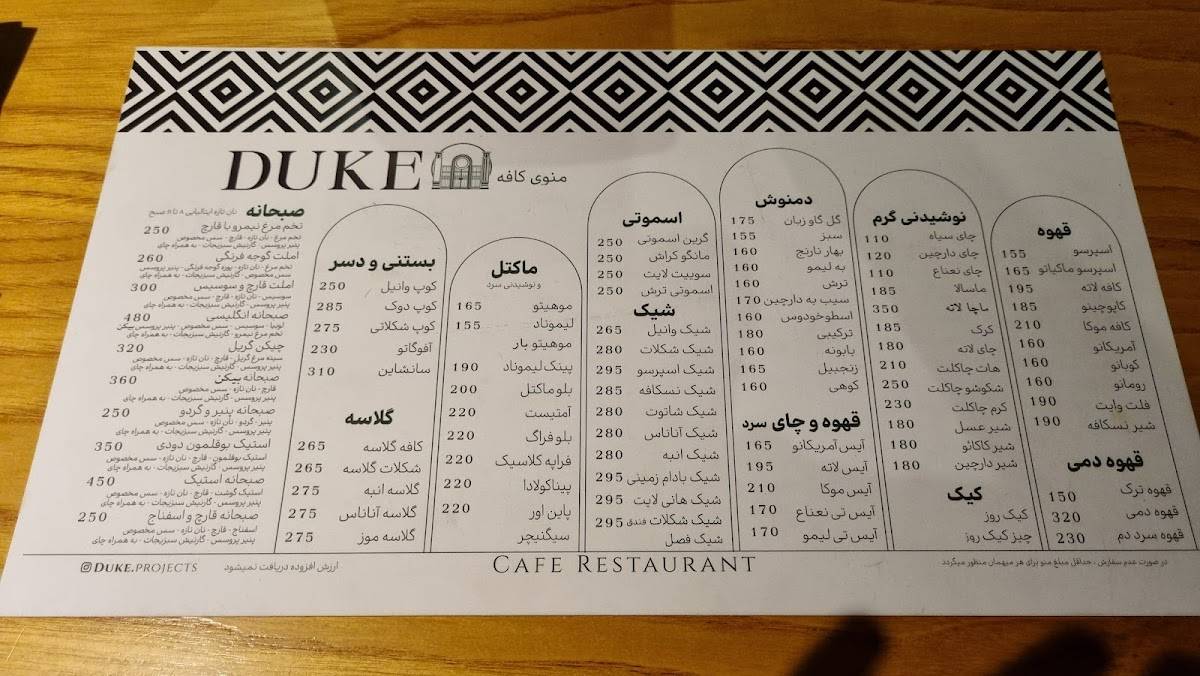 DUKE
منوی کافه
قهوه
اسپرسو 155
اسپرسو ماکیاتو 165
کافه لاته 195
کاپوچینو 185
کافه موکا 210
آمریکانو 160
کوبانو 160
رومانو 160
فلت وایت 190
شیر نسکافه 190
قهوه دمی
قهوه ترک 150
قهوه دمی 320
قهوه سرد دم 230
نوشیدنی گرم
چای سیاه 110
چای دارچین 120
چای نعناع 110
ماسالا 185
ماچا لاته 350
کرک 185
چای لاته 180
هات چاکلت 210
شکوشو چاکلت 250
کرم چاکلت 230
شیر عسل 180
شیر کاکائو 180
شیر دارچین 180
کیک
کیک روز
چیز کیک روز
دمنوش
گل گاو زبان 175
سبز 155
بهار نارنج 160
به لیمو 160
ترش 160
سیب به دارچین 170
اسطوخودوس 160
ترکیبی 180
بابونه 160
زنجبیل 165
کوهی 160
قهوه و چای سرد
آیس آمریکانو 165
آیس لاته 195
آیس موکا 210
آیس تی نعناع 170
آیس تی لیمو 170
اسموتی
گرین اسموتی 250
مانگو کراش 250
سوییت لایت 250
اسموتی ترش 250
شیک
شیک وانیل 265
شیک شکلات 280
شیک اسپرسو 295
شیک نسکافه 285
شیک شاتوت 280
شیک آناناس 280
شیک انبه 280
شیک بادام زمینی 295
شیک هانی لایت 295
شیک شکلات فندق 295
شیک فصل
ماکتل
و نوشیدنی سرد
موهیتو 165
لیموناد 155
موهیتو بار
پینک لیموناد 190
بلو ماکتل 200
آمتیست 220
بلو فراگ 220
فرایه کلاسیک 220
پیناکولادا 220
پاین اور 220
سیگنیچر
بستنی و دسر
کوپ وانیل 250
کوپ دوک 285
کوپ شکلاتی 275
آفوگاتو 230
سانشاین 310
گلاسه
کافه گلاسه 265
شکلات گلاسه 265
گلاسه انبه 275
گلاسه آناناس 275
گلاسه موز 275
صبحانه نان تازه ایتالیایی ۸ تا ۱۱ صبح
تخم مرغ نیمرو با قارچ 250
تخم مرغ - نان تازه - قارچ - سس مخصوص
پنیر پروسس - گارنیش سبزیجات - به همراه چای
املت گوجه فرنگی 260
تخم مرغ - نان تازه - پوره گوجه فرنگی - پنیر پروسس
سس مخصوص - گارنیش سبزیجات - به همراه چای
املت قارچ و سوسیس 300
سوسیس - نان تازه - قارچ - سس مخصوص
پنیر پروسس - گارنیش سبزیجات - به همراه چای
صبحانه انگلیسی 480
لوبیا - سوسیس - سس مخصوص - پنیر پروسس بیکن
تخم مرغ نیمرو - گارنیش سبزیجات - به همراه چای
چیکن گریل 320
سینه مرغ گریل - قارچ - نان تازه - سس مخصوص
پنیر پروسس - گارنیش سبزیجات - به همراه چای
صبحانه بیکن 360
قارچ - نان تازه - سس مخصوص
پنیر پروسس - گارنیش سبزیجات - به همراه چای
صبحانه پنیر و گردو 250
پنیر - گردو - نان تازه - سس مخصوص
پنیر پروسس - گارنیش سبزیجات - به همراه چای
استیک بوقلمون دودی 350
استیک بوقلمون - قارچ - نان تازه - سس مخصوص
پنیر پروسس - گارنیش سبزیجات - به همراه چای
صبحانه استیک 450
استیک گوشت - قارچ - نان تازه - سس مخصوص
پنیر پروسس - گارنیش سبزیجات - به همراه چای
صبحانه قارچ و اسفناج 250
اسفناج - قارچ - نان تازه - سس مخصوص
پنیر پروسس - گارنیش سبزیجات - به همراه چای
در صورت عدم سفارش ، حداقل مبلغ منو برای هر میهمان منظور میگردد
CAFE RESTAURANT
ارزش افزوده دریافت نمیشود
DUKE.PROJECTS